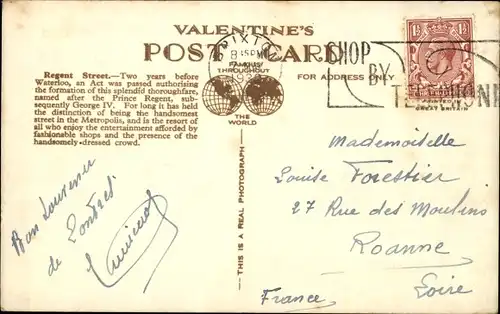 VALENTINE'S
POST CARD
BRIXTON
8:15 PM
SHOP
BY
TELEPHONE
FAMOUS
THROUGHOUT
THE
WORLD
FOR ADDRESS ONLY
PRINTED IN
GREAT BRITAIN
Regent Street.—Two years before
Waterloo, an Act was passed authorising
the formation of this splendid thoroughfare,
named after the Prince Regent, sub-
sequently George IV. For long it has held
the distinction of being the handsomest
street in the Metropolis, and is the resort of
all who enjoy the entertainment afforded by
fashionable shops and the presence of the
handsomely-dressed crowd.
THIS IS A REAL PHOTOGRAPH
Bon Souvenir
de Londres
Mademoiselle
Louise Forestier
27 Rue des Moulins
Roanne
Loire
France